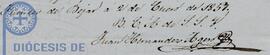 de Bejar a 2 de Enero de 1857
B. L. M. de S. S. S.
Juan Hernandez
DIÓCESIS DE